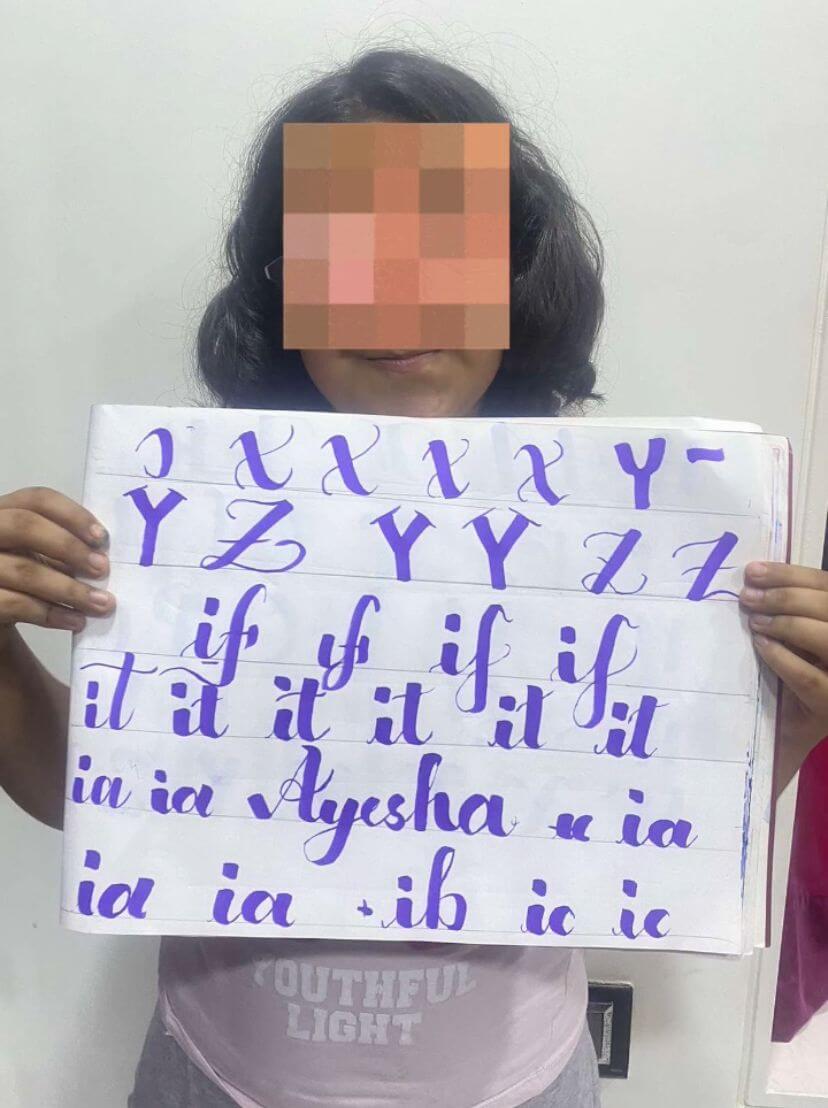 X X X X Y -
Y Z Y Y Z Z
if if if if
it it it it it it
ia ia Ayesha u ia
ia ia ib ic ic
YOUTHFUL
LIGHT